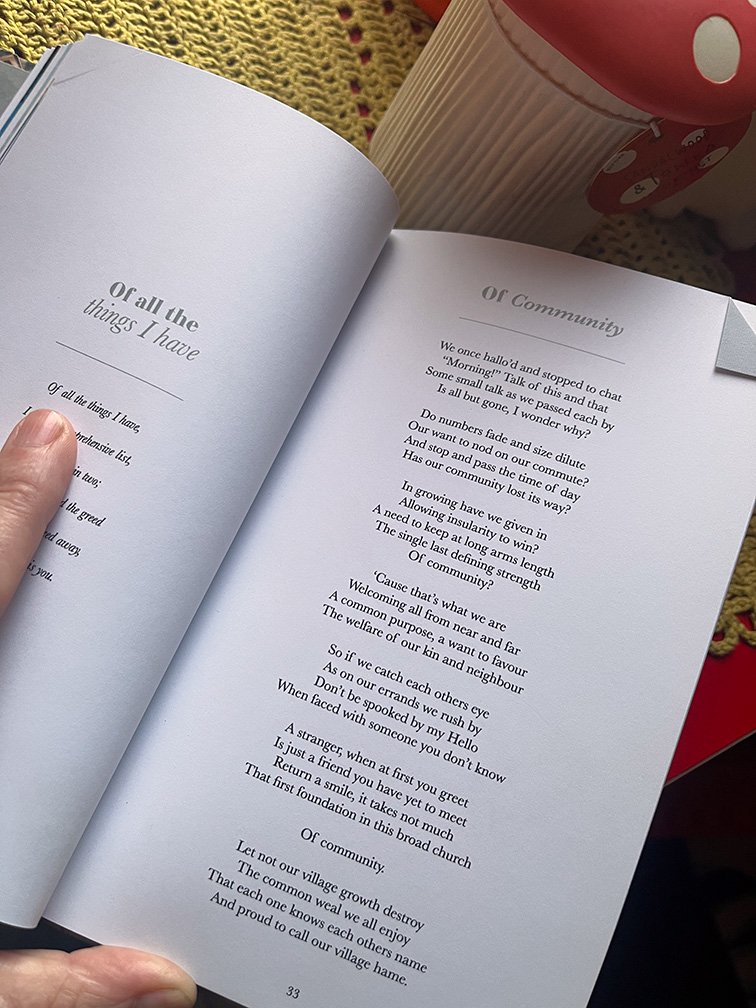 Of all the
things I have
Of all the things I have,
I
prehensive list,
in two;
d the greed
ed away,
is you.
Of Community
We once hallo'd and stopped to chat
“Morning!” Talk of this and that
Some small talk as we passed each by
Is all but gone, I wonder why?
Do numbers fade and size dilute
Our want to nod on our commute?
And stop and pass the time of day
Has our community lost its way?
In growing have we given in
Allowing insularity to win?
A need to keep at long arms length
The single last defining strength
Of community?
‘Cause that’s what we are
Welcoming all from near and far
A common purpose, a want to favour
The welfare of our kin and neighbour
So if we catch each others eye
As on our errands we rush by
Don’t be spooked by my Hello
When faced with someone you don’t know
A stranger, when at first you greet
Is just a friend you have yet to meet
Return a smile, it takes not much
That first foundation in this broad church
Of community.
Let not our village growth destroy
The common weal we all enjoy
That each one knows each others name
And proud to call our village hame.
33